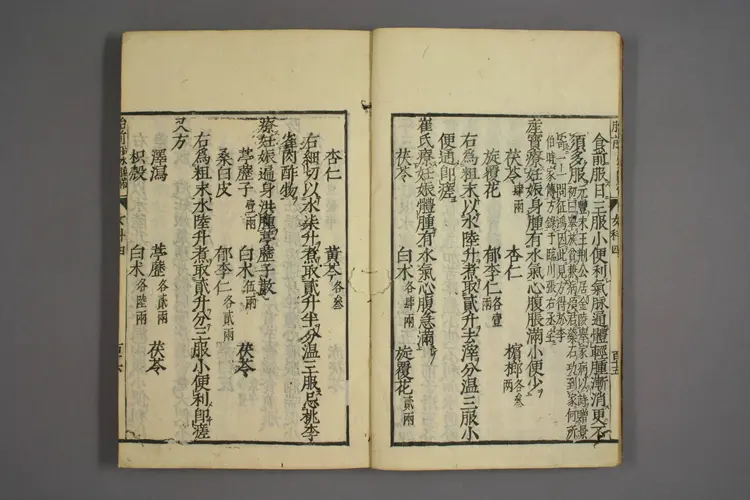 食前服日三服小便利氣脉通體輕腫漸消更不
須多服
産寶療妊娠身腫有水氣心腹脹滿小便少
茯苓肆兩 杏仁 檳榔各叁兩
旋覆花 郁李仁各壹兩
右為粗末以水陸升煮取貳升去滓分温三服小
便通即瘥
崔氏療妊娠體腫有水氣心腹急滿
茯苓 白术各肆兩 旋覆花貳兩
杏仁 黄芩各叁
右細切以水柒升煮取貳升半分温三服忌桃李
雀肉酢物
療妊娠遍身洪腫葶藶子散
葶藶子壹兩 白术伍兩 茯苓
桑白皮 郁李仁各貳兩
右為粗末水陸升煮取貳升分三服小便利即瘥
又方
澤瀉 葶藶各貳兩 茯苓
枳殼 白术各陸兩
女科四